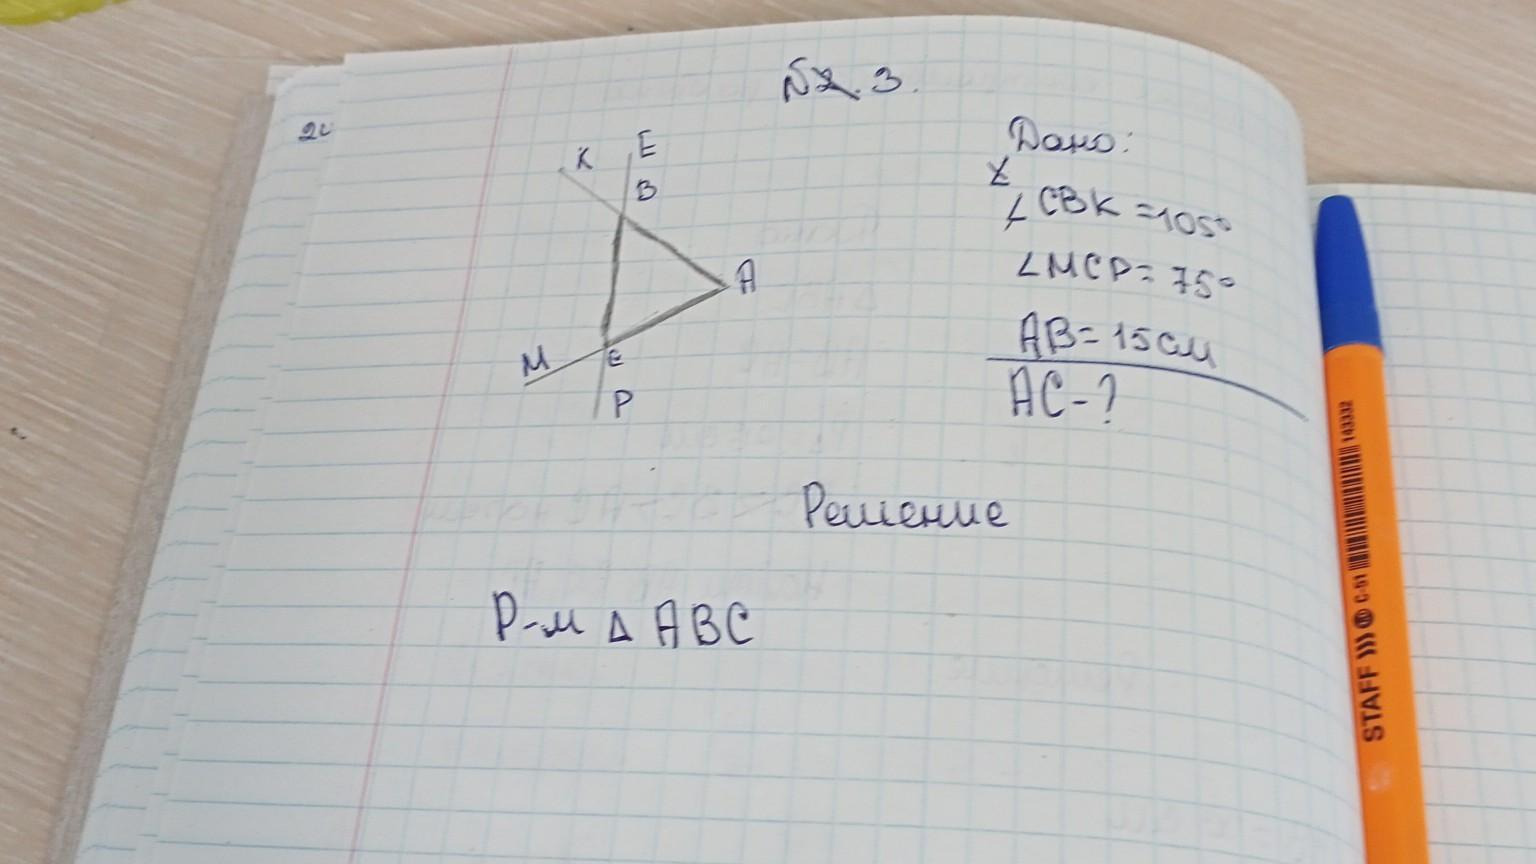 №2. 3.
K E
B
A
M C
P
Дано:
∠CBK = 105°
∠MCP = 75°
AB = 15 см
AC - ?
Решение
Р-м Δ ABC
STAFF C-51 143332